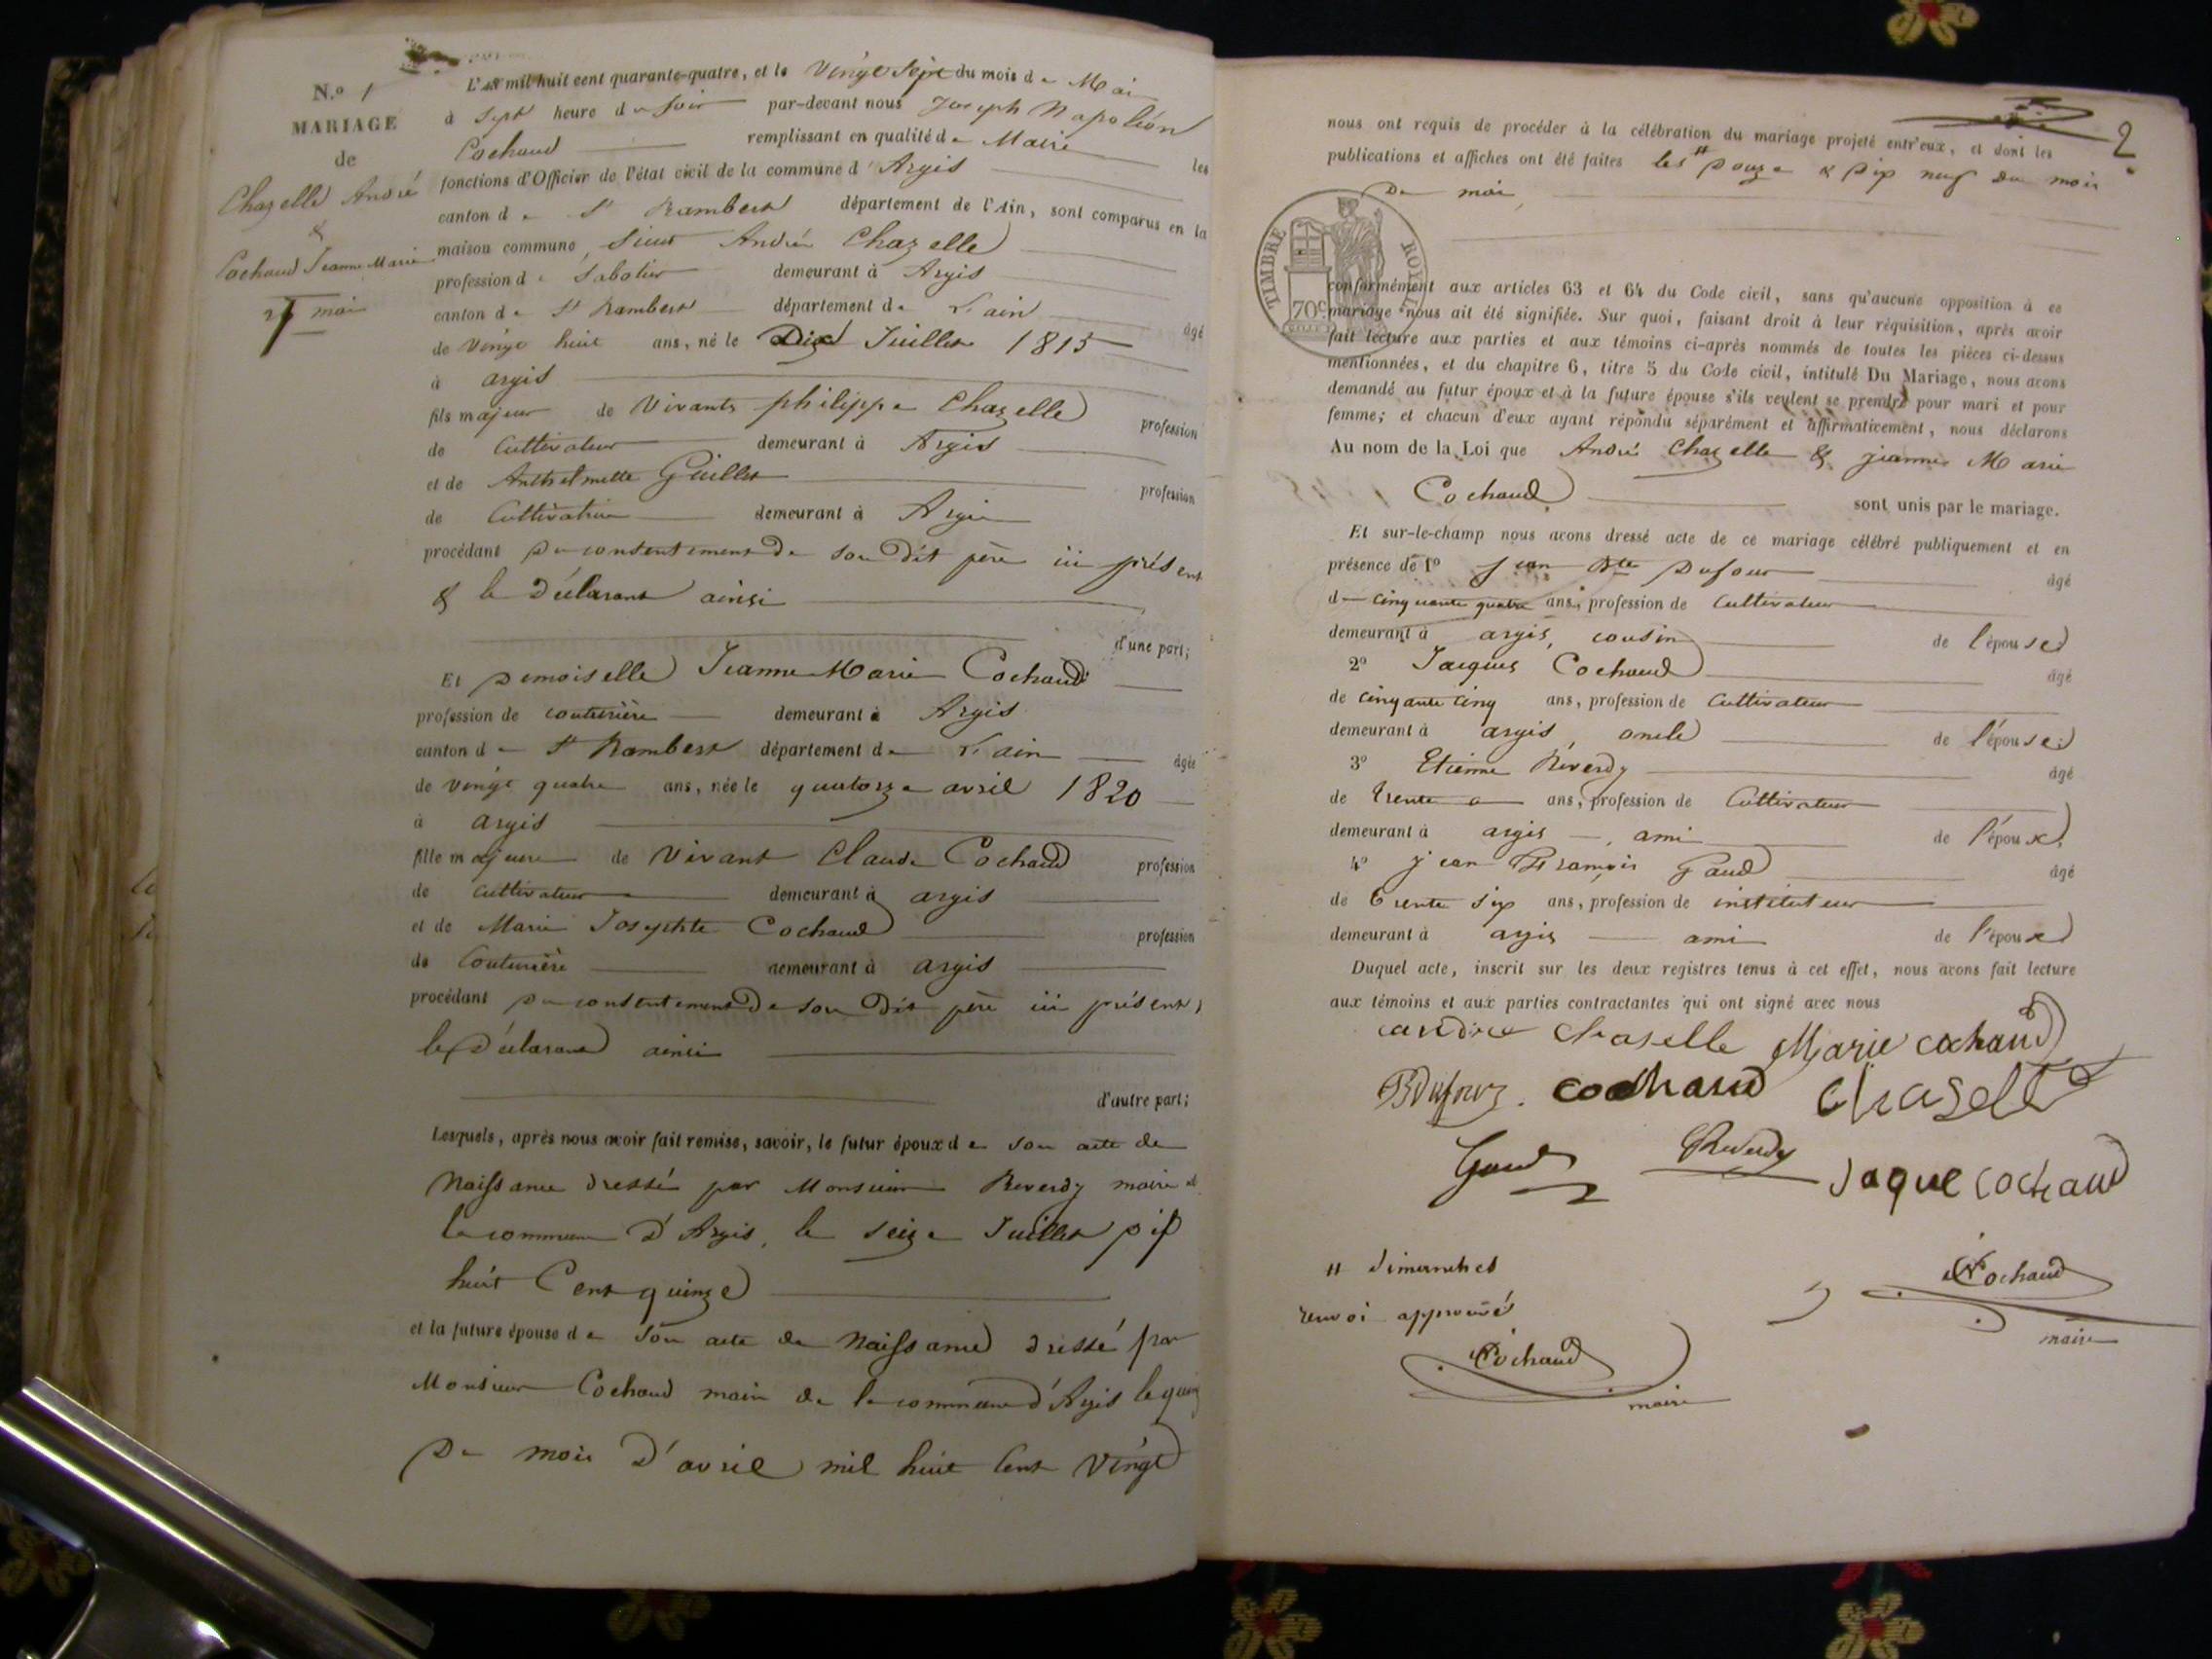 N.º 1
MARIAGE
de
Chazelle André
&
Cochaud Jeanne Marie
27 mai
L'an mil huit cent quarante-quatre, et le Vingt Sept du mois de Mai
à Sept heure du Soir par-devant nous Joseph Napoléon
Cochaud remplissant en qualité de Maire les
fonctions d'Officier de l'état civil de la commune d'Argis
canton de St Rambert département de l'Ain, sont comparus en la
maison commune, Sieur André Chazelle
profession de Sabotier demeurant à Argis
canton de St Rambert département de L'ain âgé
de Vingt huit ans, né le Juillet 1815
à argis
fils majeur de Vivants philippe Chazelle profession
de Cultivateur demeurant à Argis
et de Anthelmette Guillet profession
de Cultivatrice demeurant à Argis
procédant du consentement de son dit père ici présent
& le déclarant ainsi
d'une part;
Et demoiselle Jeanne Marie Cochaud
profession de couturière demeurant à Argis
canton de St Rambert département de L'ain âgée
de vingt quatre ans, née le quatorze avril 1820
à argis
fille majeure de Vivant Claude Cochaud profession
de cultivateur demeurant à argis
et de Marie Josephte Cochaud profession
de Couturière demeurant à argis
procédant du consentement de son dit père ici présent,
le déclarant ainsi
d'autre part;
Lesquels, après nous avoir fait remise, savoir, le futur époux de son acte de
Naissance dressé par Monsieur Reverdy maire de
la commune d'Argis, le seize Juillet dix
huit Cent quinze
et la future épouse de Son acte de Naissance dressé par
Monsieur Cochaud maire de la commune d'Argis le quinz
du mois d'avril mil huit Cent Vingt
2
nous ont requis de procéder à la célébration du mariage projeté entr'eux, et dont les
publications et affiches ont été faites les # douze & dix neuf du mois
de mai,
TIMBRE ROYAL
70c
conformément aux articles 63 et 64 du Code civil, sans qu'aucune opposition à ce
mariage nous ait été signifiée. Sur quoi, faisant droit à leur réquisition, après avoir
fait lecture aux parties et aux témoins ci-après nommés de toutes les pièces ci-dessus
mentionnées, et du chapitre 6, titre 5 du Code civil, intitulé Du Mariage, nous avons
demandé au futur époux et à la future épouse s'ils veulent se prendre pour mari et pour
femme; et chacun d'eux ayant répondu séparément et affirmativement, nous déclarons
Au nom de la Loi que André Chazelle & jeanne Marie
Cochaud sont unis par le mariage.
Et sur-le-champ nous avons dressé acte de ce mariage célébré publiquement et en
présence de 1º Jean Bte Dufour âgé
de cinquante quatre ans, profession de Cultivateur
demeurant à argis, cousin de l'épouse
2º Jacques Cochaud âgé
de cinqante cinq ans, profession de Cultivateur
demeurant à argis, oncle de l'épouse
3º Etienne Réverdy âgé
de trente ans, profession de Cultivateur
demeurant à argis, ami de l'époux
4º jean François Gaud âgé
de trente six ans, profession de instituteur
demeurant à argis ami de l'époux
Duquel acte, inscrit sur les deux registres tenus à cet effet, nous avons fait lecture
aux témoins et aux parties contractantes qui ont signé avec nous
andre chaselle Marie cochaud
BDufour. cochaud chaselle
Gaud Reverdy Jaque cochaud
# dimanches
renvoi approuvé
Cochaud
maire
Cochaud
maire